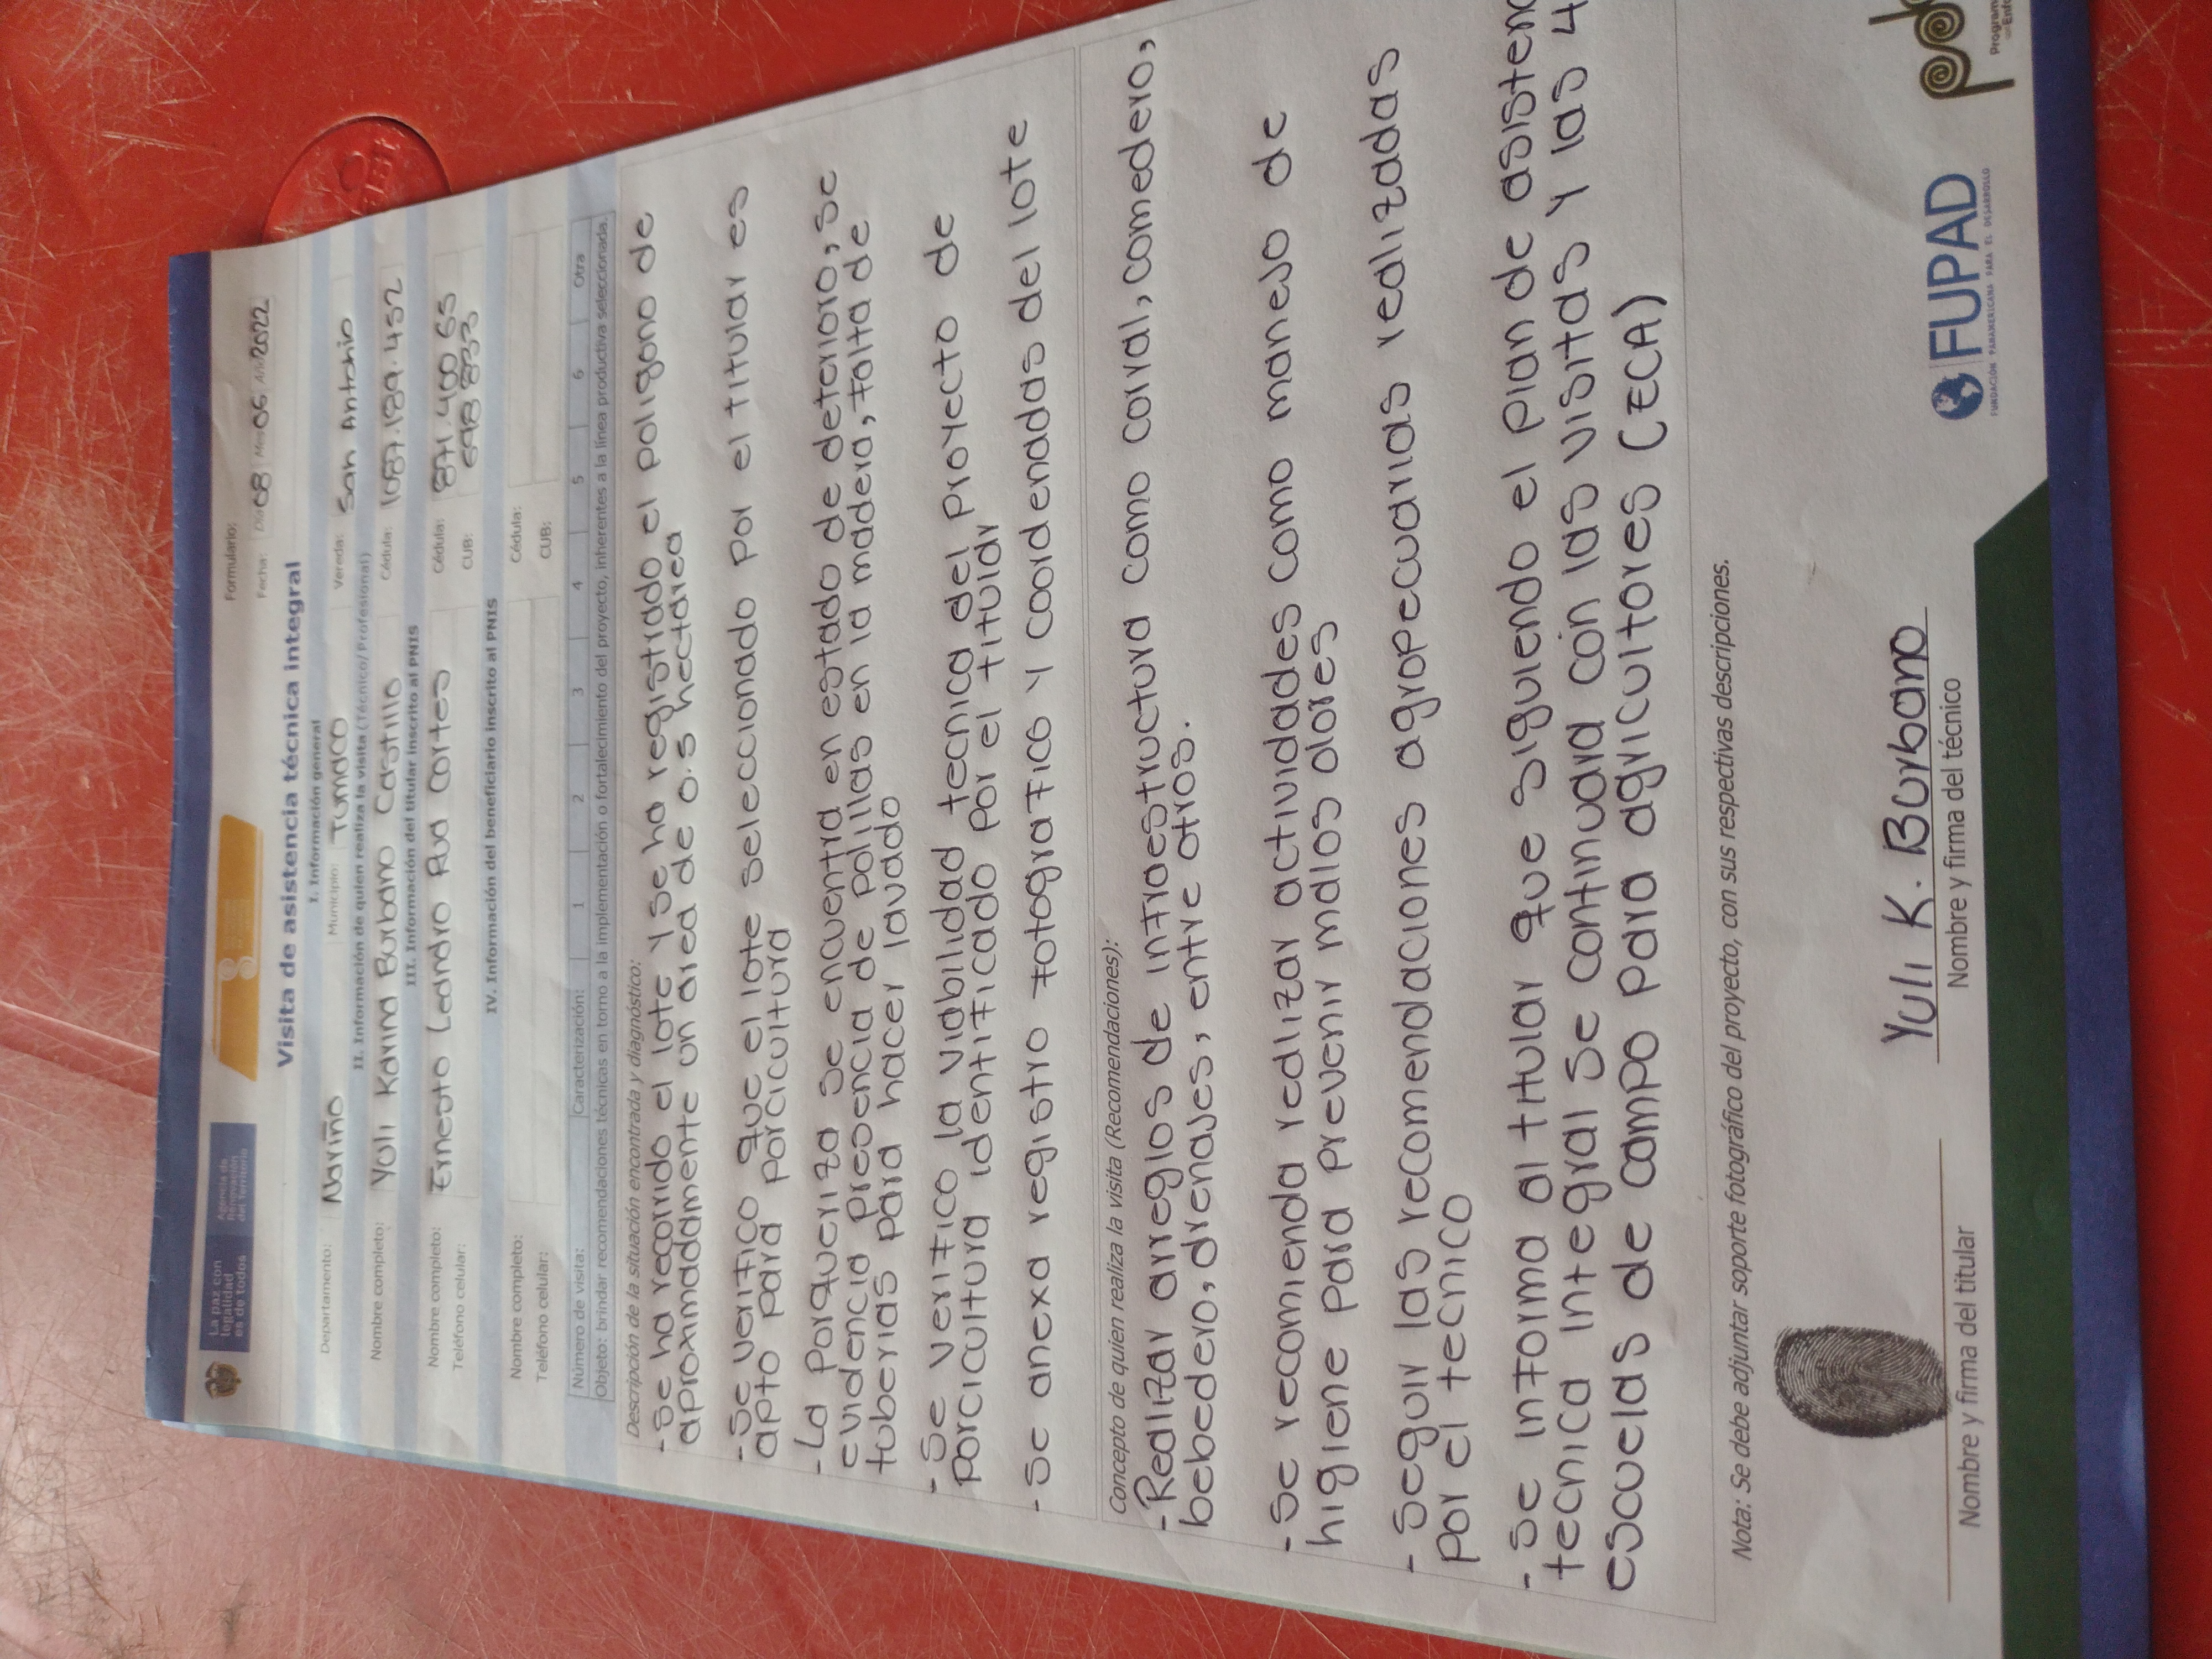 La paz con
legalidad
es de todos
Agencia de
Renovación
del Territorio
Formulario:
Fecha: Día 08 Mes 06 Año 2022
Visita de asistencia técnica integral
I. Información general
Departamento: Nariño Municipio: Tumaco Vereda: San Antonio
II. Información de quien realiza la visita (Técnico/Profesional)
Nombre completo: Yuli Karina Burbano Castillo Cédula: 1087.189.452
III. Información del titular inscrito al PNIS
Nombre completo: Ernesto Leandro Rua Cortes Cédula: 871.400.65
Teléfono celular: CUB: 698 8333
IV. Información del beneficiario inscrito al PNIS
Nombre completo: Cédula:
Teléfono celular: CUB:
Número de visita: Caracterización: 1 2 3 4 5 6 Otra
Objeto: brindar recomendaciones técnicas en torno a la implementación o fortalecimiento del proyecto, inherentes a la línea productiva seleccionada.
Descripción de la situación encontrada y diagnóstico:
-Se ha recorrido el lote y se ha registrado el poligono de
aproximadadmente un area de 0.5 hectarea
-Se verifico que el lote seleccionado por el titular es
apto para porcicultura
-La Porqueriza se encuentra en estado de deterioro, se
evidencia presencia de polillas en la madera, falta de
tuberias para hacer lavado
-Se verifico la viabilidad tecnica del Proyecto de
porcicultura identificado por el titular
-Se anexa registro fotografico y coordenadas del lote
Concepto de quien realiza la visita (Recomendaciones):
-Realizar arreglos de infraestructura como corral, comedero,
bebedero, drenajes, entre otros.
-Se recomienda realizar actividades como manejo de
higiene para prevenir malos olores
-Seguir las recomendaciones agropecuarias realizadas
por el tecnico
-Se informa al titular que siguiendo el plan de
tecnica integral se continuara con las visitas y las 4
escuelas de campo para agricultores (ECA)
Nota: Se debe adjuntar soporte fotográfico del proyecto, con sus respectivas descripciones.
Yuli K. Burbano
Nombre y firma del titular
Nombre y firma del técnico
FUPAD
FUNDACIÓN PANAMERICANA PARA EL DESARROLLO